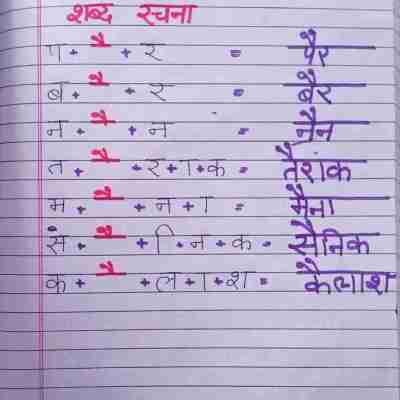 शब्द रचना
प + ै + र = पैर
ब + ै + र = बैर
न + ै + न = नैन
त + ै + र + ा + क = तैराक
म + ै + न + ा = मैना
स + ै + ि + न + क = सैनिक
क + ै + ल + ा + श = कैलाश